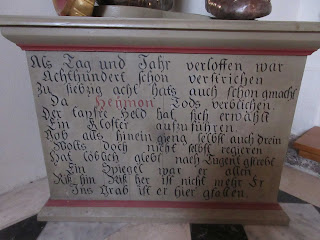 Als Tag und Jahr verloffen war
Achthundert schon verstrichen
Zu siebzig acht hats auch schon gmacht
Da Heymon Tods verblichen.
Der tapfre Held hat sich erwählt
Ein Kloster aufzuführen.
Gab als hinein gieng selbst auch drein
Wolts doch nicht selbst regieren
Hat löblich glebt nach Tugent gstrebt
Ein Spiegel war er allen
Riß hin Riß her ist nicht mehr Er
Ins Grab ist er hier gfallen.